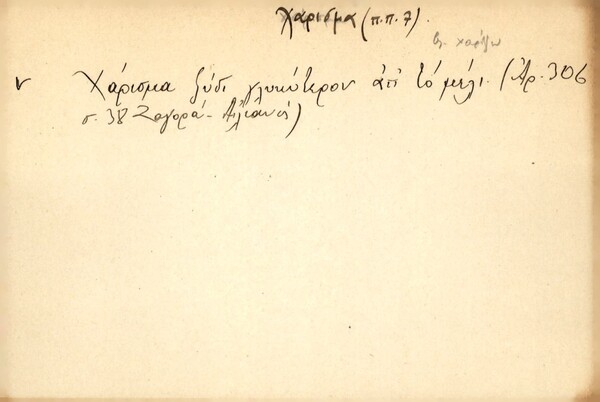 Χάρισμα (π.π. 7).
βλ. χαρίζω
Χάρισμα ξύδι γλυκύτερον ἀπ' τό μέλι. (Ἀρ. 306
σ. 38 Ζαγορά -